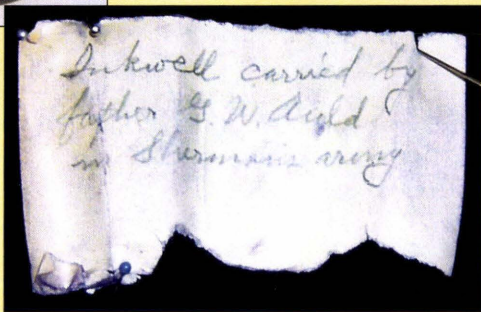 Inkwell carried by
father G. W. Auld
in Sherman's army